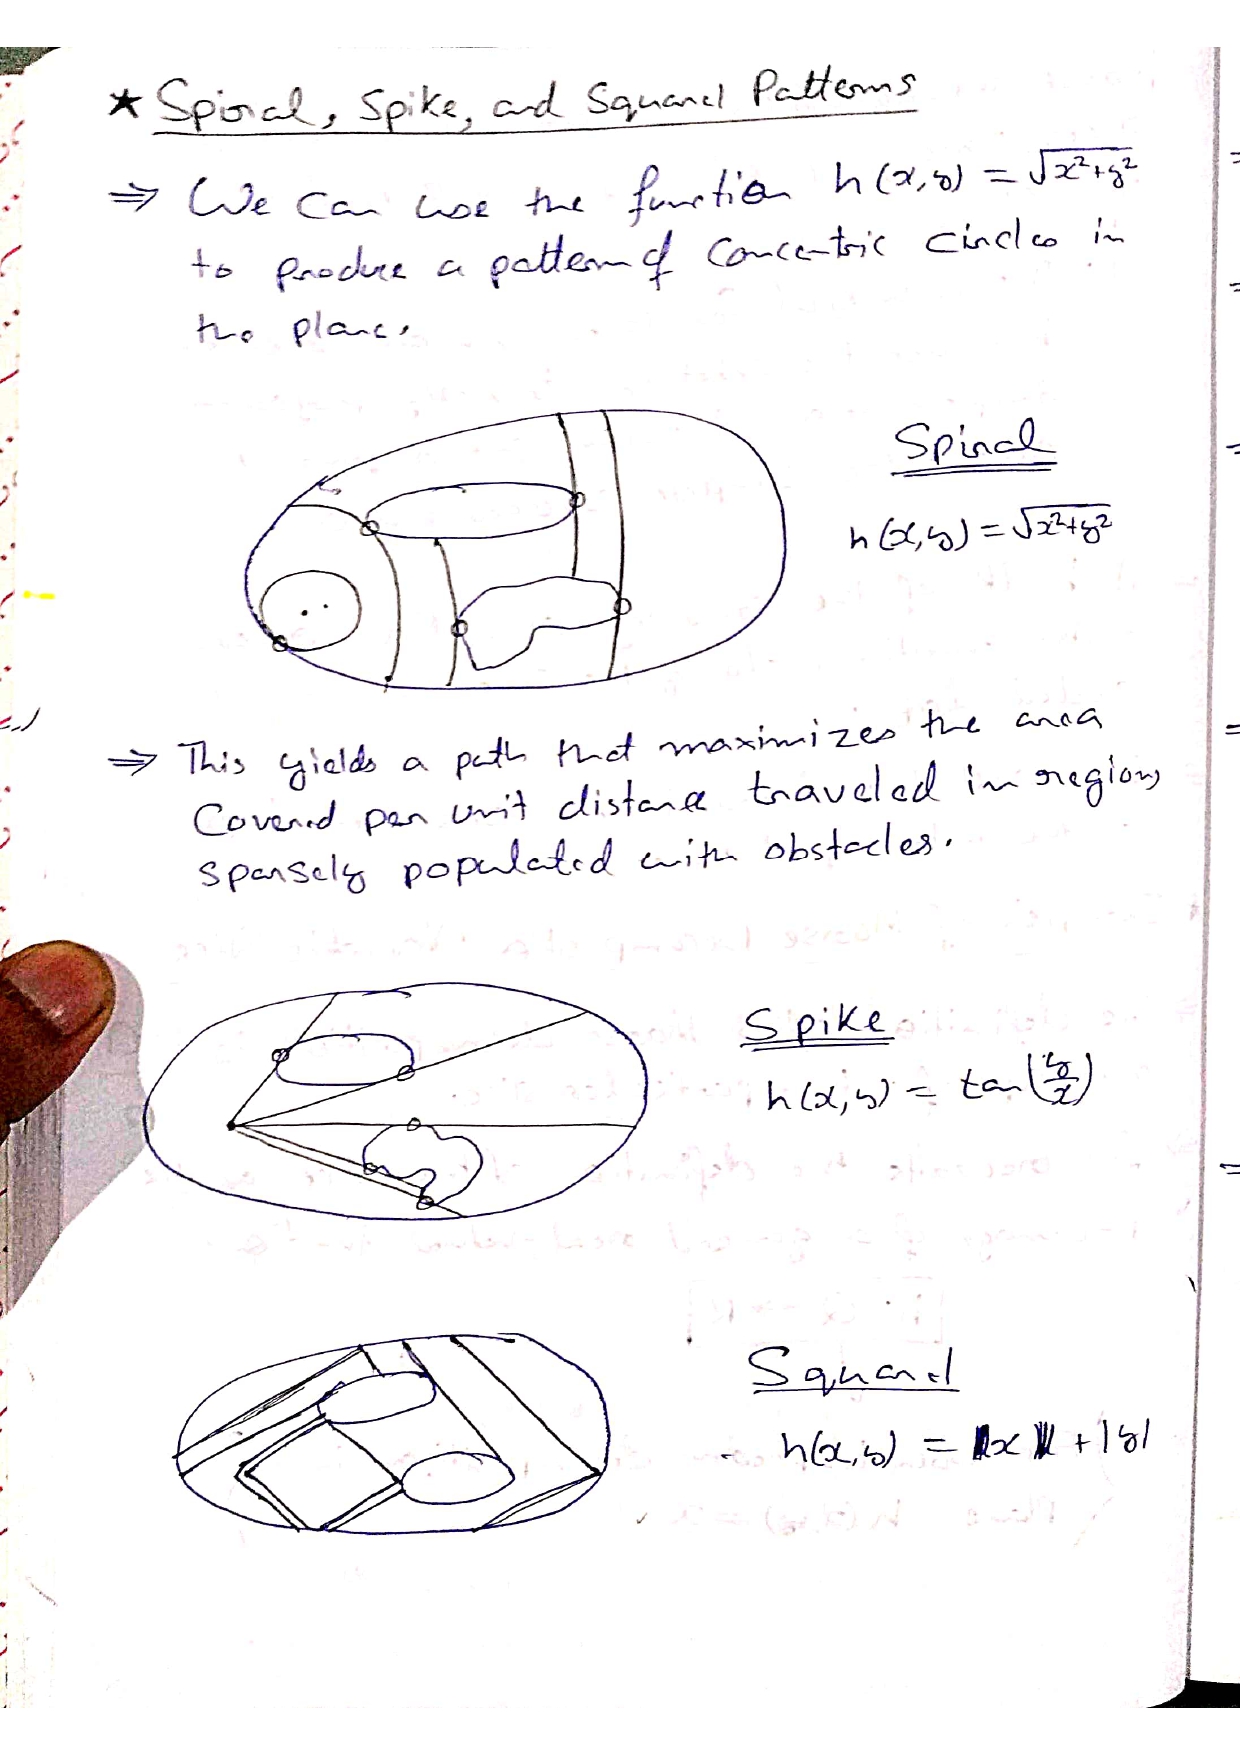 ★ Spiral, Spike, and Squarel Patterns
⇒ We can use the function h(x,y) = √x²+y²
to produce a pattern of concentric circles in
the plane.
Spiral
h(x,y) = √x²+y²
⇒ This yields a path that maximizes the area
covered per unit distance traveled in regions
sparsely populated with obstacles.
Spike
h(x,y) = tan(y/x)
Squarel
h(x,y) = |x| + |y|